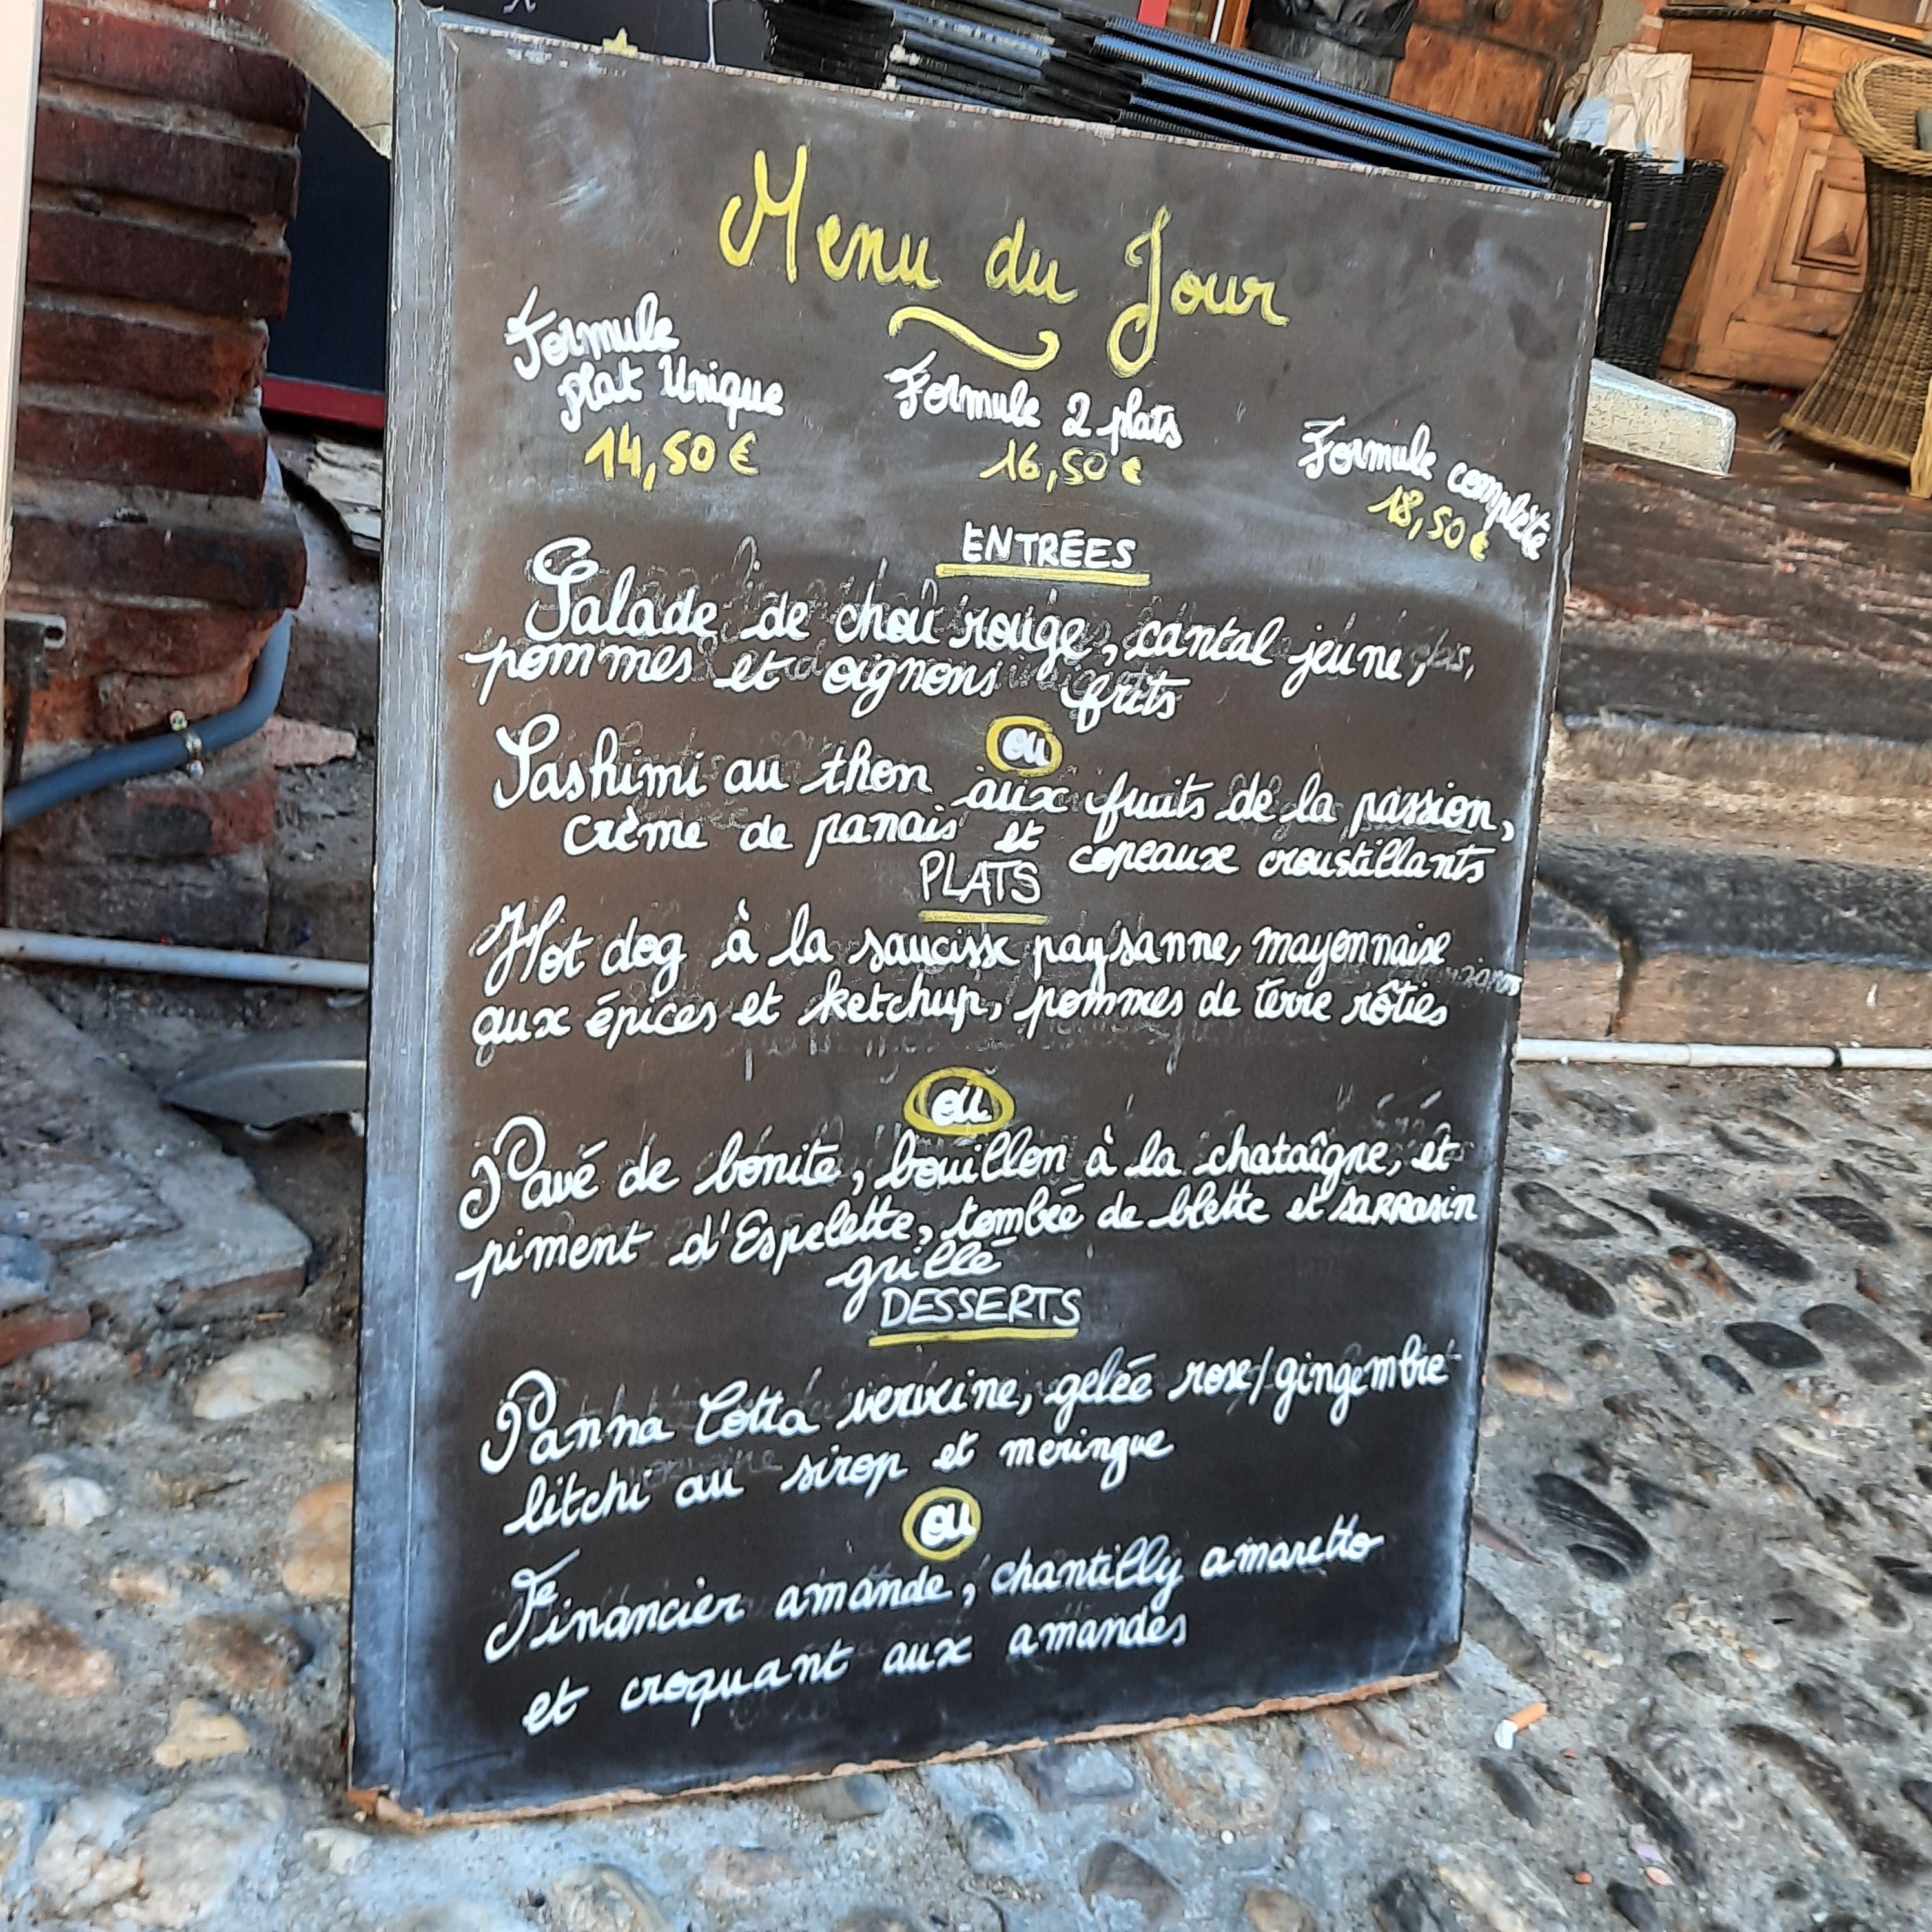 Menu du Jour
Formule
plat Unique
14,50 €
Formule 2 plats
16,50 €
Formule complète
18,50 €
ENTRÉES
Salade de chou rouge, cantal jeune,
pommes et oignons frits
ou
Sashimi au thon aux fruits de la passion,
crème de panais et copeaux croustillants
PLATS
Hot dog à la saucisse paysanne, mayonnaise
aux épices et ketchup, pommes de terre rôties
ou
Pavé de bonite, bouillon à la chataîgne, et
piment d'Espelette, tombée de blette et sarrasin
grillé
DESSERTS
Panna Cotta verveine, gelée rose/gingembre
litchi au sirop et meringue
ou
Financier amande, chantilly amaretto
et croquant aux amandes